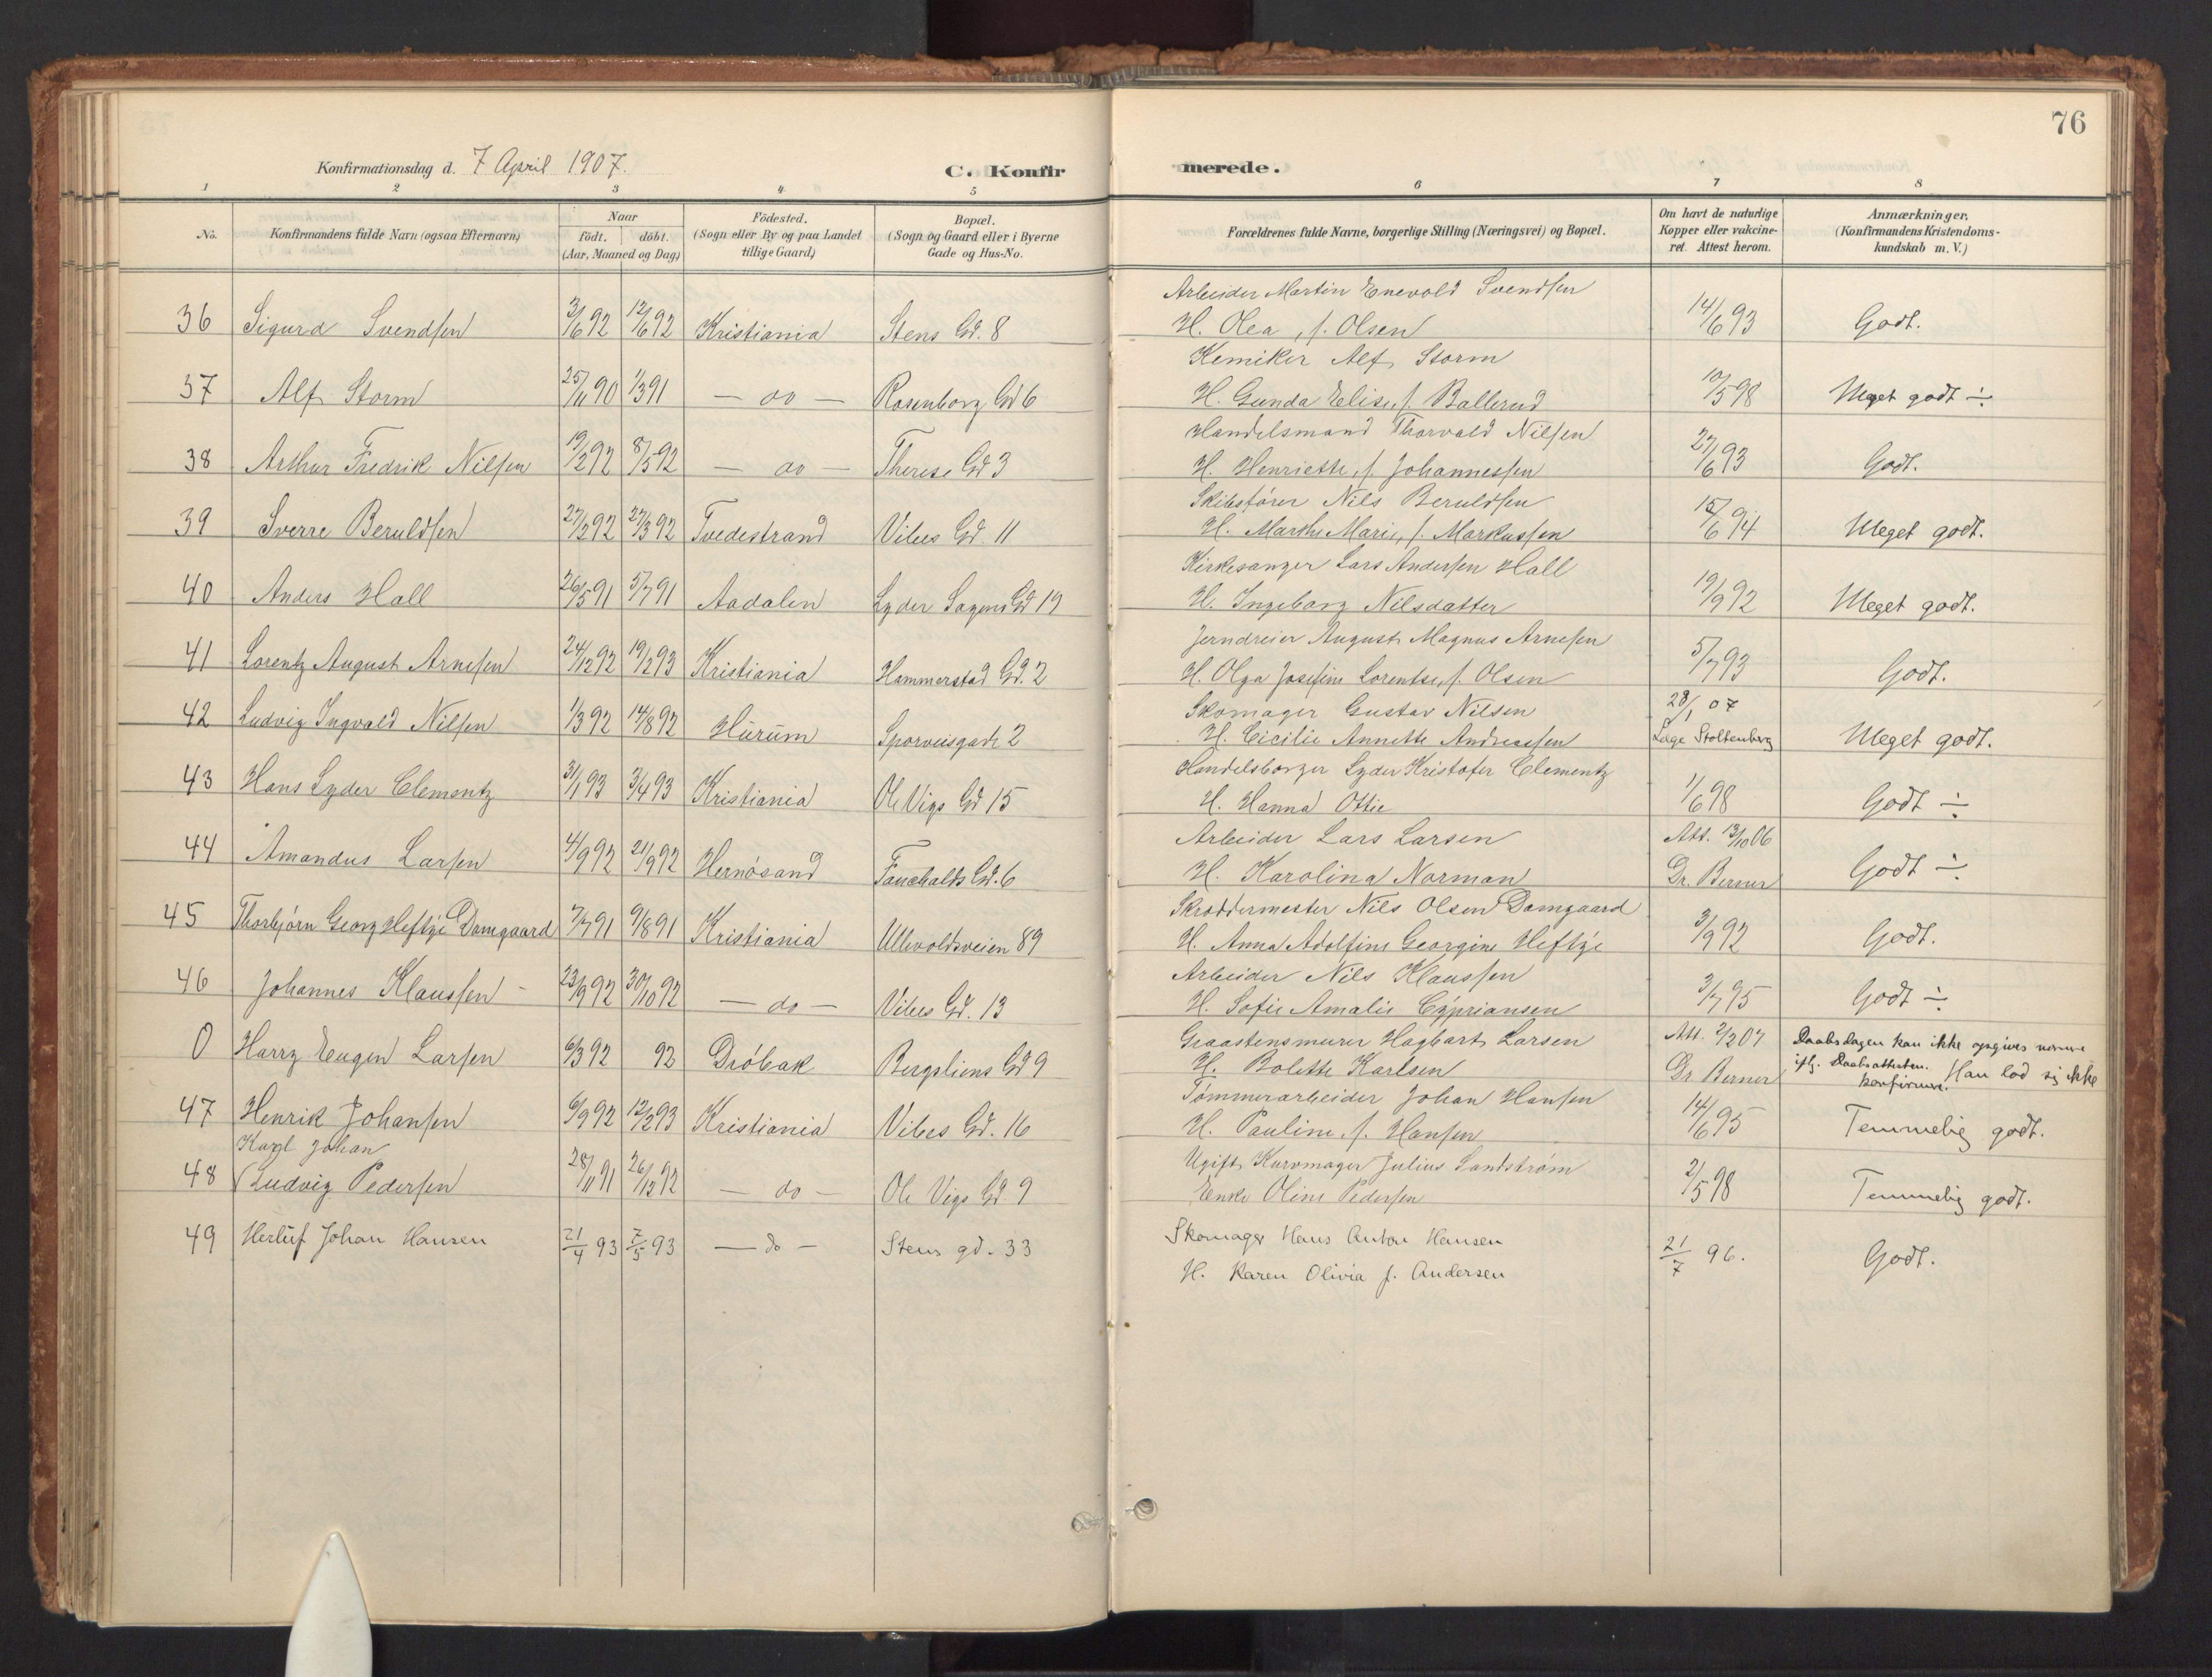 76
Konfirmationsdag d. 7 April 1907.
C. Konfirmerede.
1 2 3 4 5 6 7 8
No.
Konfirmandens fulde Navn (ogsaa Efternavn)
Naar
födt. döbt.
(Aar, Maaned og Dag)
Födested.
(Sogn eller By og paa Landet
tillige Gaard)
Bopæl.
(Sogn og Gaard eller i Byerne
Gade og Hus-No.
Forældrenes fulde Navne, borgerlige Stilling (Næringsvei) og Bopæl.
Om havt de naturlige
Kopper eller vakcine-
ret. Attest herom.
Anmærkninger.
(Konfirmandens Kristendoms-
kundskab m. V.)
Arbeider Martin Enevold Svendsen
36 Sigurd Svendsen 3/6 92 12/6 92 Kristiania Stens Gd. 8 H. Olea, f. Olsen 14/6 93 Godt.
Kemiker Alf Storm
37 Alf Storm 25/11 90 1/3 91 — do — Rosenborg Gd 6 H. Gunda Elise, f. Ballerud 10/5 98 Meget godt ÷
Handelsmand Thorvald Nilsen
38 Arthur Fredrik Nilsen 19/2 92 8/5 92 — do — Therese Gd 3 H. Henriette, f. Johannessen 27/6 93 Godt.
Skibsfører Nils Beruldsen
39 Sverre Beruldsen 27/2 92 27/3 92 Tvedestrand Vibes Gd. 11 H. Marthe Marie, f. Markussen 15/6 94 Meget godt.
Kirkesanger Lars Andersen Hall
40 Anders Hall 26/5 91 5/7 91 Aadalen Lyder Sagens Gd 19 H. Ingeborg Nilsdatter 19/9 92 Meget godt.
Jerndreier August Magnus Arnesen
41 Lorentz August Arnesen 24/12 92 19/2 93 Kristiania Hammerstad Gd. 2 H. Olga Josefine Lorentse, f. Olsen 5/7 93 Godt.
Skomager Gustav Nilsen 28/1 07
42 Ludvig Ingvald Nilsen 1/3 92 14/8 92 Hurum Sporveisgade 2 H. Cicilie Annette Andreassen Læge Stoltenberg Meget godt.
Handelsborger Lyder Kristofer Clementz
43 Hans Lyder Clementz 31/1 93 3/4 93 Kristiania Ole Vigs Gd 15 H. Hanna Ottie 1/6 98 Godt ÷
Arbeider Lars Larsen Att. 13/10 06
44 Amandus Larsen 4/9 92 21/9 92 Hernösand Fauchalds Gd. 6 H. Karolina Norman Dr. Berner Godt ÷
Skræddermester Nils Olsen Damgaard
45 Thorbjørn Georg Heftye Damgaard 7/7 91 9/8 91 Kristiania Ullevoldsveien 89 H. Anna Adolfine Georgine Heftye 3/9 92 Godt.
Arbeider Nils Klaussen
46 Johannes Klaussen 23/9 92 30/10 92 — do — Vibes Gd. 13 H. Sofie Amalie Cypriansen 3/7 95 Godt ÷
Graastensmurer Hagbart Larsen Att. 2/2 07 Daabsdagen kan ikke opgives nærmere
0 Harry Eugen Larsen 6/3 92 92 Dröbak Bergsliens Gd 9 H. Bolette Karlsen Dr Berner iflg. Daabsattesten. Han lod sig ikke
konfirmere.
Tömmerarbeider Johan Hansen
47 Henrik Johansen 6/9 92 12/2 93 Kristiania Vibes Gd. 16 H. Pauline, f. Hansen 14/6 95 Temmelig godt.
Karl Johan
Ugift Kurvmager Julius Sandström
48 (Ludvig Pedersen 28/11 91 26/12 92 — do — Ole Vigs Gd. 9 Enke Oline Pedersen 2/5 98 Temmelig godt.
Skomager Hans Anton Hansen
49 Herluf Johan Hansen 21/4 93 7/5 93 — do — Stens gd. 33 21/7 96. Godt.
H. Karen Olivia f. Andersen